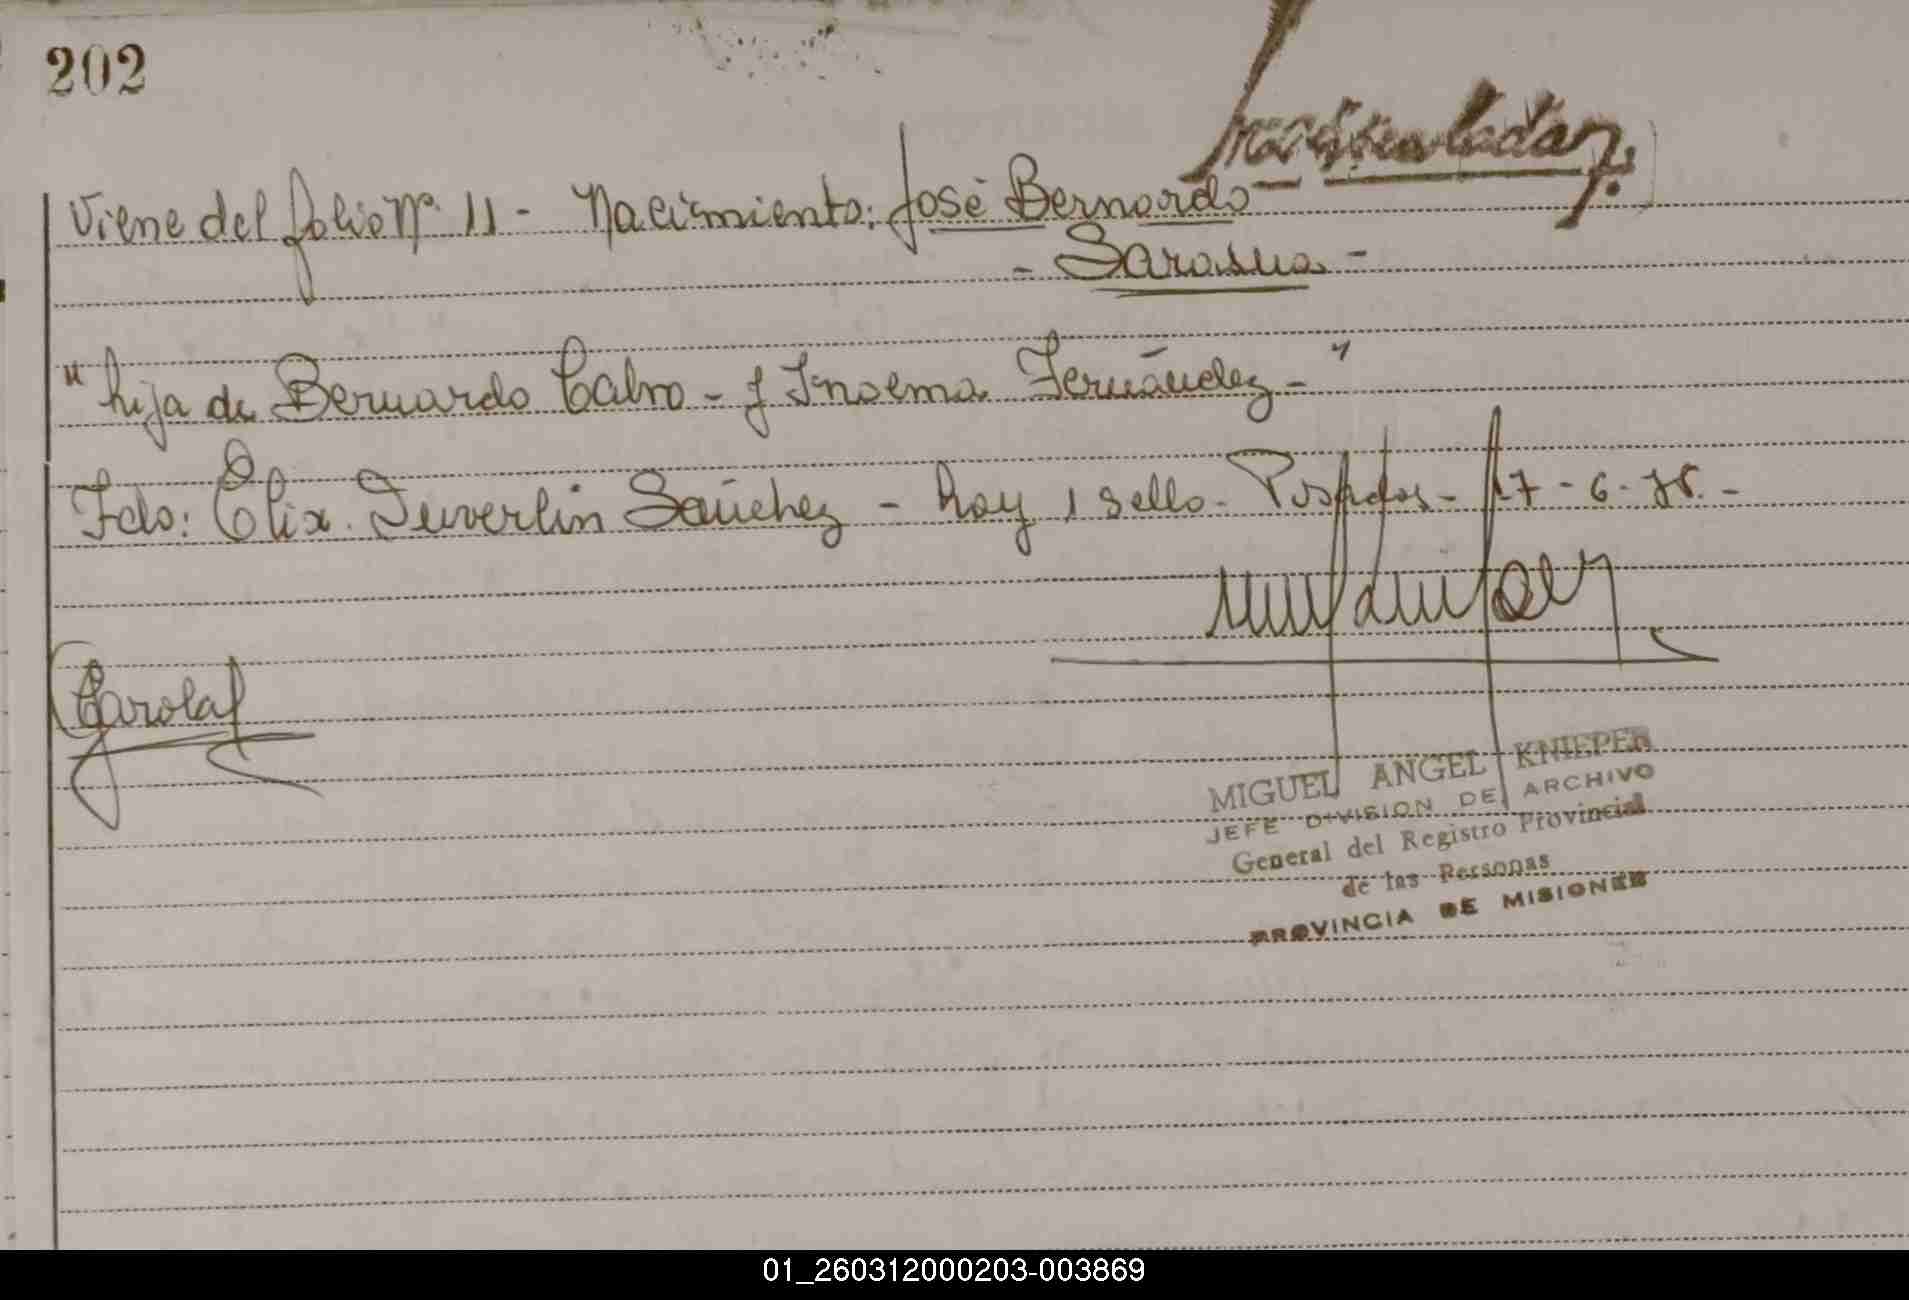 202
Viene del folio Nº 11 - Nacimiento: José Bernardo
- Sarasua -
"hija de Bernardo Calvo - y Inoema Fernández - "
Fdo: Elix. Duverlin Sánchez - hay 1 sello - Psdas - 17 - 6 - 75. -
MIGUEL ANGEL KNIEPER
JEFE DIVISION DE ARCHIVO
General del Registro Provincial
de las Personas
PROVINCIA DE MISIONES
01_260312000203-003869